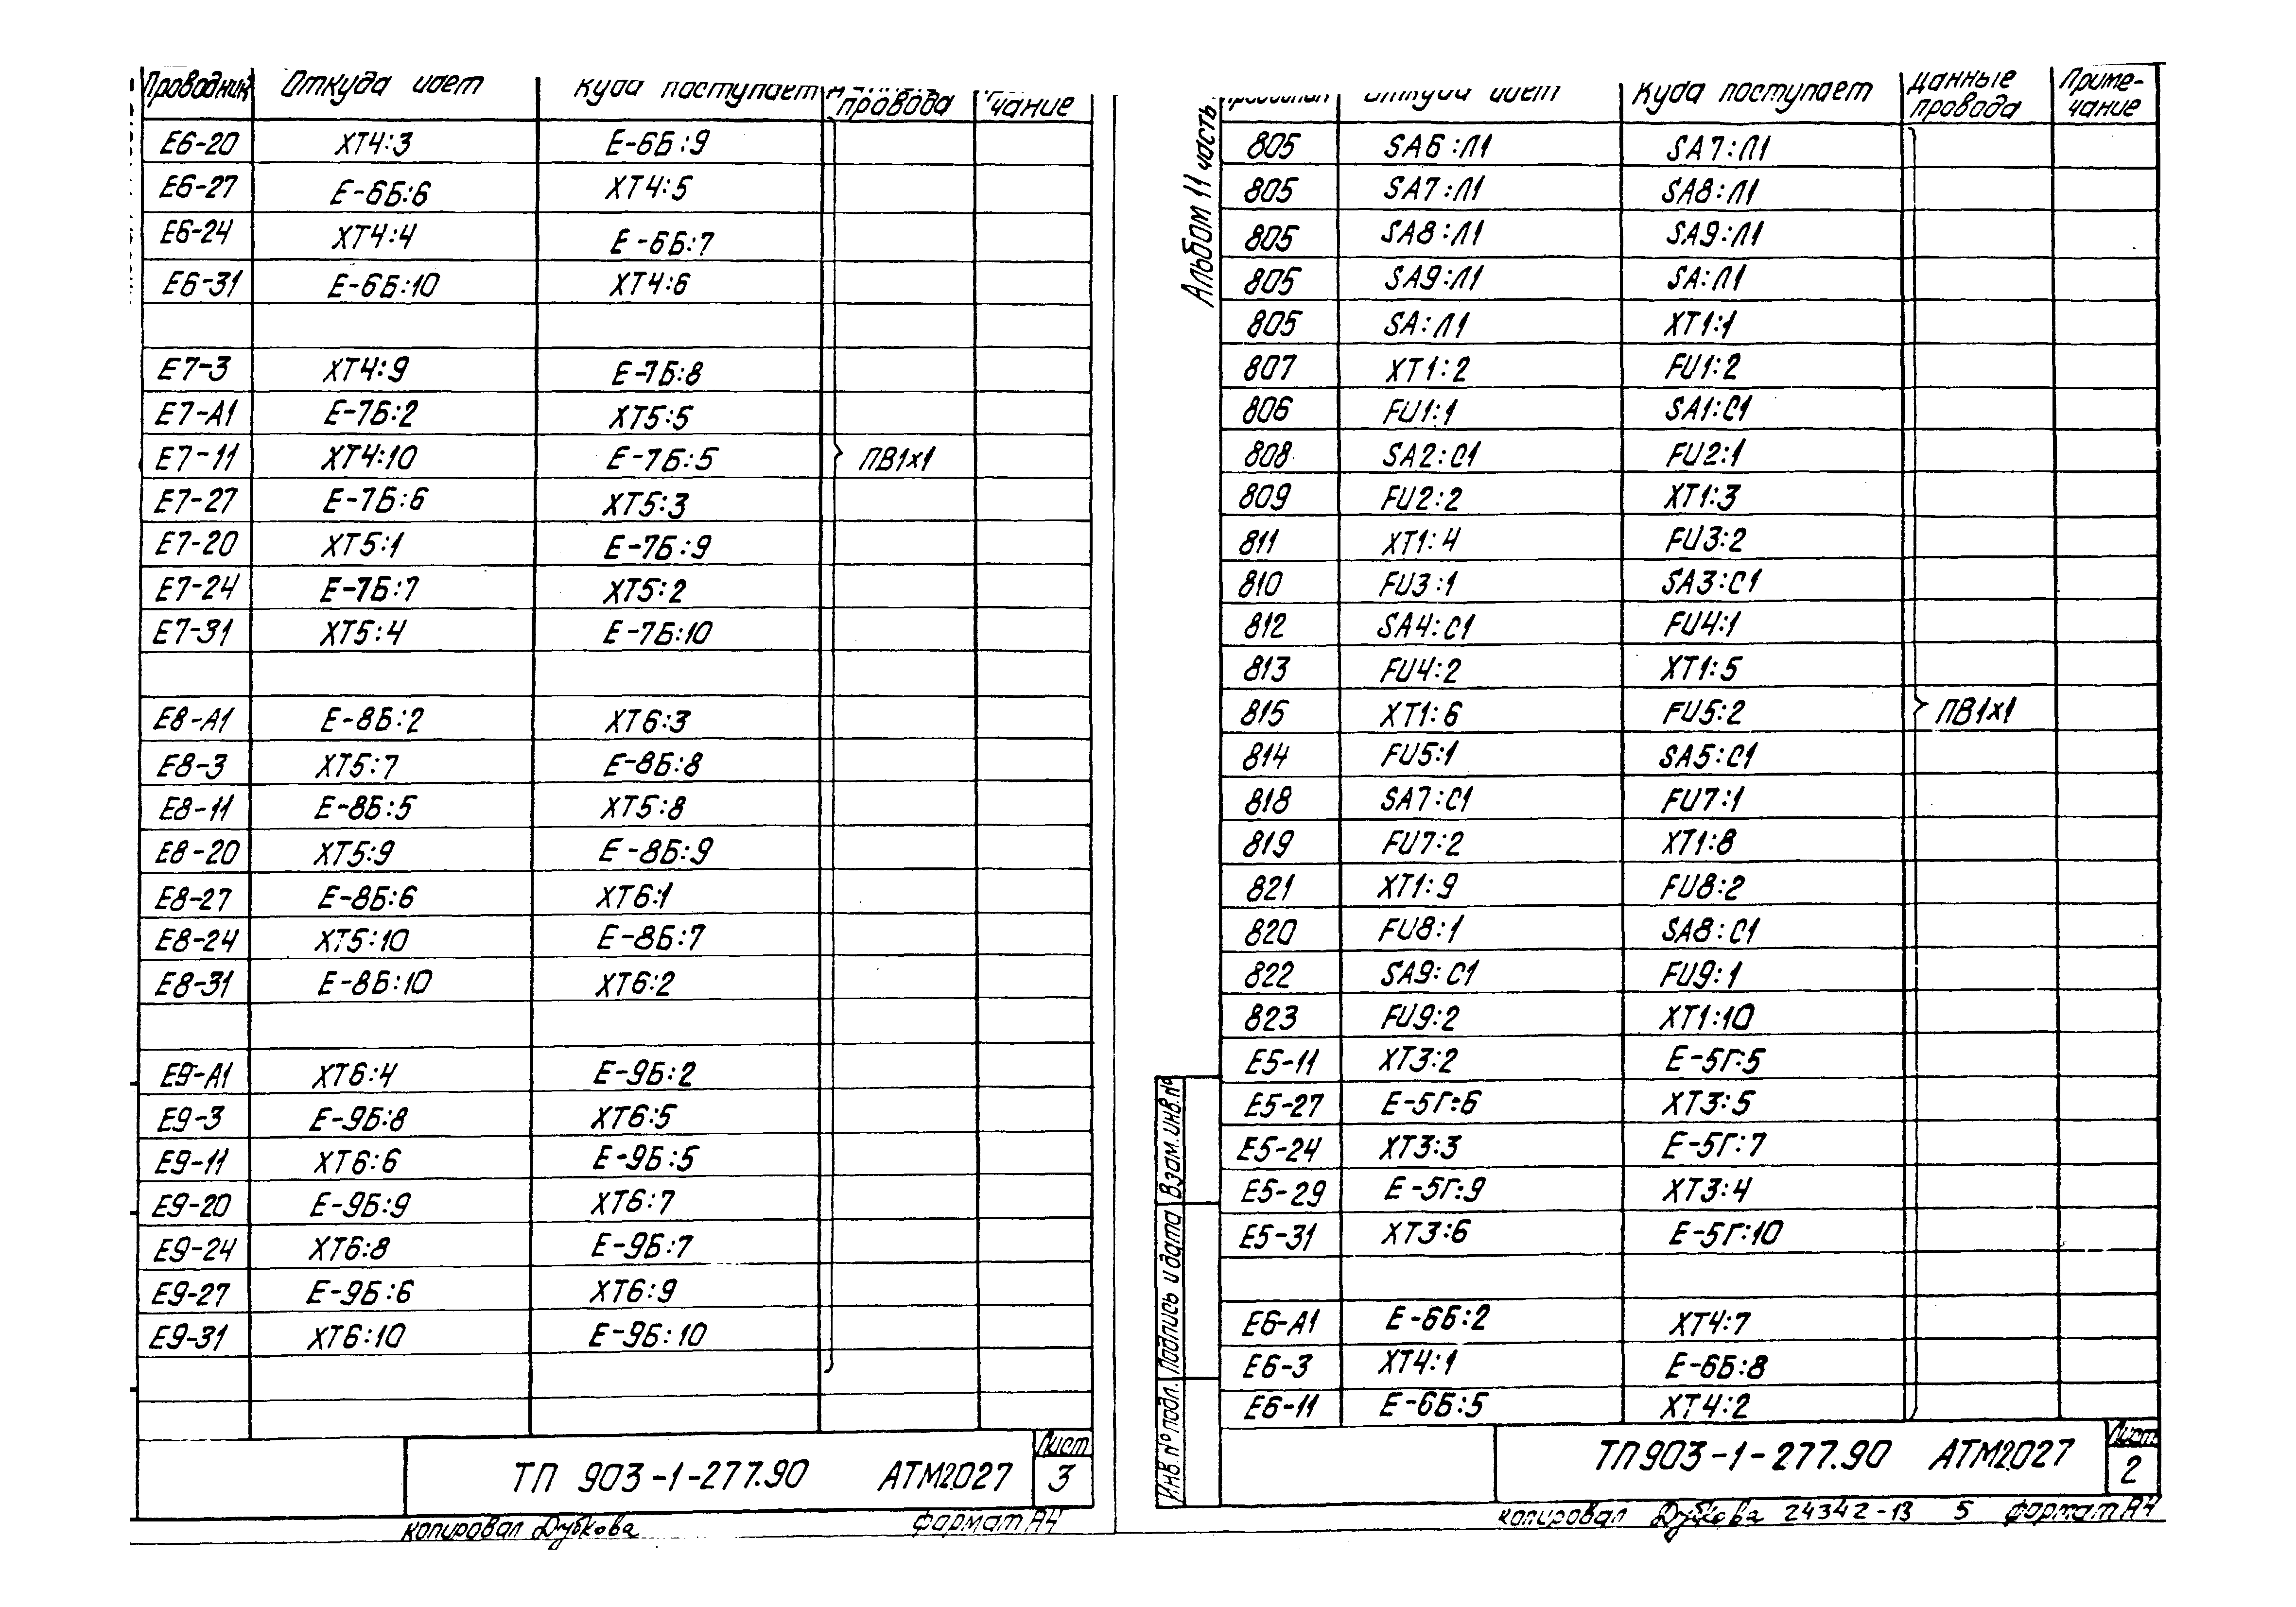 Проводник Откуда идет Куда поступает провода чание
Е6-20 ХТ4:3 Е-6Б:9
Е6-27 Е-6Б:6 ХТ4:5
Е6-24 ХТ4:4 Е-6Б:7
Е6-31 Е-6Б:10 ХТ4:6
Е7-3 ХТ4:9 Е-7Б:8
Е7-А1 Е-7Б:2 ХТ5:5
Е7-11 ХТ4:10 Е-7Б:5 ПВ1х1
Е7-27 Е-7Б:6 ХТ5:3
Е7-20 ХТ5:1 Е-7Б:9
Е7-24 Е-7Б:7 ХТ5:2
Е7-31 ХТ5:4 Е-7Б:10
Е8-А1 Е-8Б:2 ХТ6:3
Е8-3 ХТ5:7 Е-8Б:8
Е8-11 Е-8Б:5 ХТ5:8
Е8-20 ХТ5:9 Е-8Б:9
Е8-27 Е-8Б:6 ХТ6:1
Е8-24 ХТ5:10 Е-8Б:7
Е8-31 Е-8Б:10 ХТ6:2
Е9-А1 ХТ6:4 Е-9Б:2
Е9-3 Е-9Б:8 ХТ6:5
Е9-11 ХТ6:6 Е-9Б:5
Е9-20 Е-9Б:9 ХТ6:7
Е9-24 ХТ6:8 Е-9Б:7
Е9-27 Е-9Б:6 ХТ6:9
Е9-31 ХТ6:10 Е-9Б:10
ТП 903-1-277.90 АТМ2027
Лист
3
копировал Дубкова формат А4
Альбом 11 часть
Откуда идет Куда поступает Данные провода Приме-
чание
805 SA6:Л1 SA7:Л1
805 SA7:Л1 SA8:Л1
805 SA8:Л1 SA9:Л1
805 SA9:Л1 SA:Л1
805 SA:Л1 ХТ1:1
807 ХТ1:2 FU1:2
806 FU1:1 SA1:С1
808 SA2:С1 FU2:1
809 FU2:2 ХТ1:3
811 ХТ1:4 FU3:2
810 FU3:1 SA3:С1
812 SA4:С1 FU4:1
813 FU4:2 ХТ1:5
815 ХТ1:6 FU5:2 ПВ1х1
814 FU5:1 SA5:С1
818 SA7:С1 FU7:1
819 FU7:2 ХТ1:8
821 ХТ1:9 FU8:2
820 FU8:1 SA8:С1
822 SA9:С1 FU9:1
823 FU9:2 ХТ1:10
Е5-11 ХТ3:2 Е-5Г:5
Е5-27 Е-5Г:6 ХТ3:5
Е5-24 ХТ3:3 Е-5Г:7
Е5-29 Е-5Г:9 ХТ3:4
Е5-31 ХТ3:6 Е-5Г:10
Е6-А1 Е-6Б:2 ХТ4:7
Е6-3 ХТ4:1 Е-6Б:8
Е6-11 Е-6Б:5 ХТ4:2
Инв.№подл. Подпись и дата Взам.инв.№
ТП903-1-277.90 АТМ2027
Лист
2
копировал Дубкова 24342-13 5 формат А4